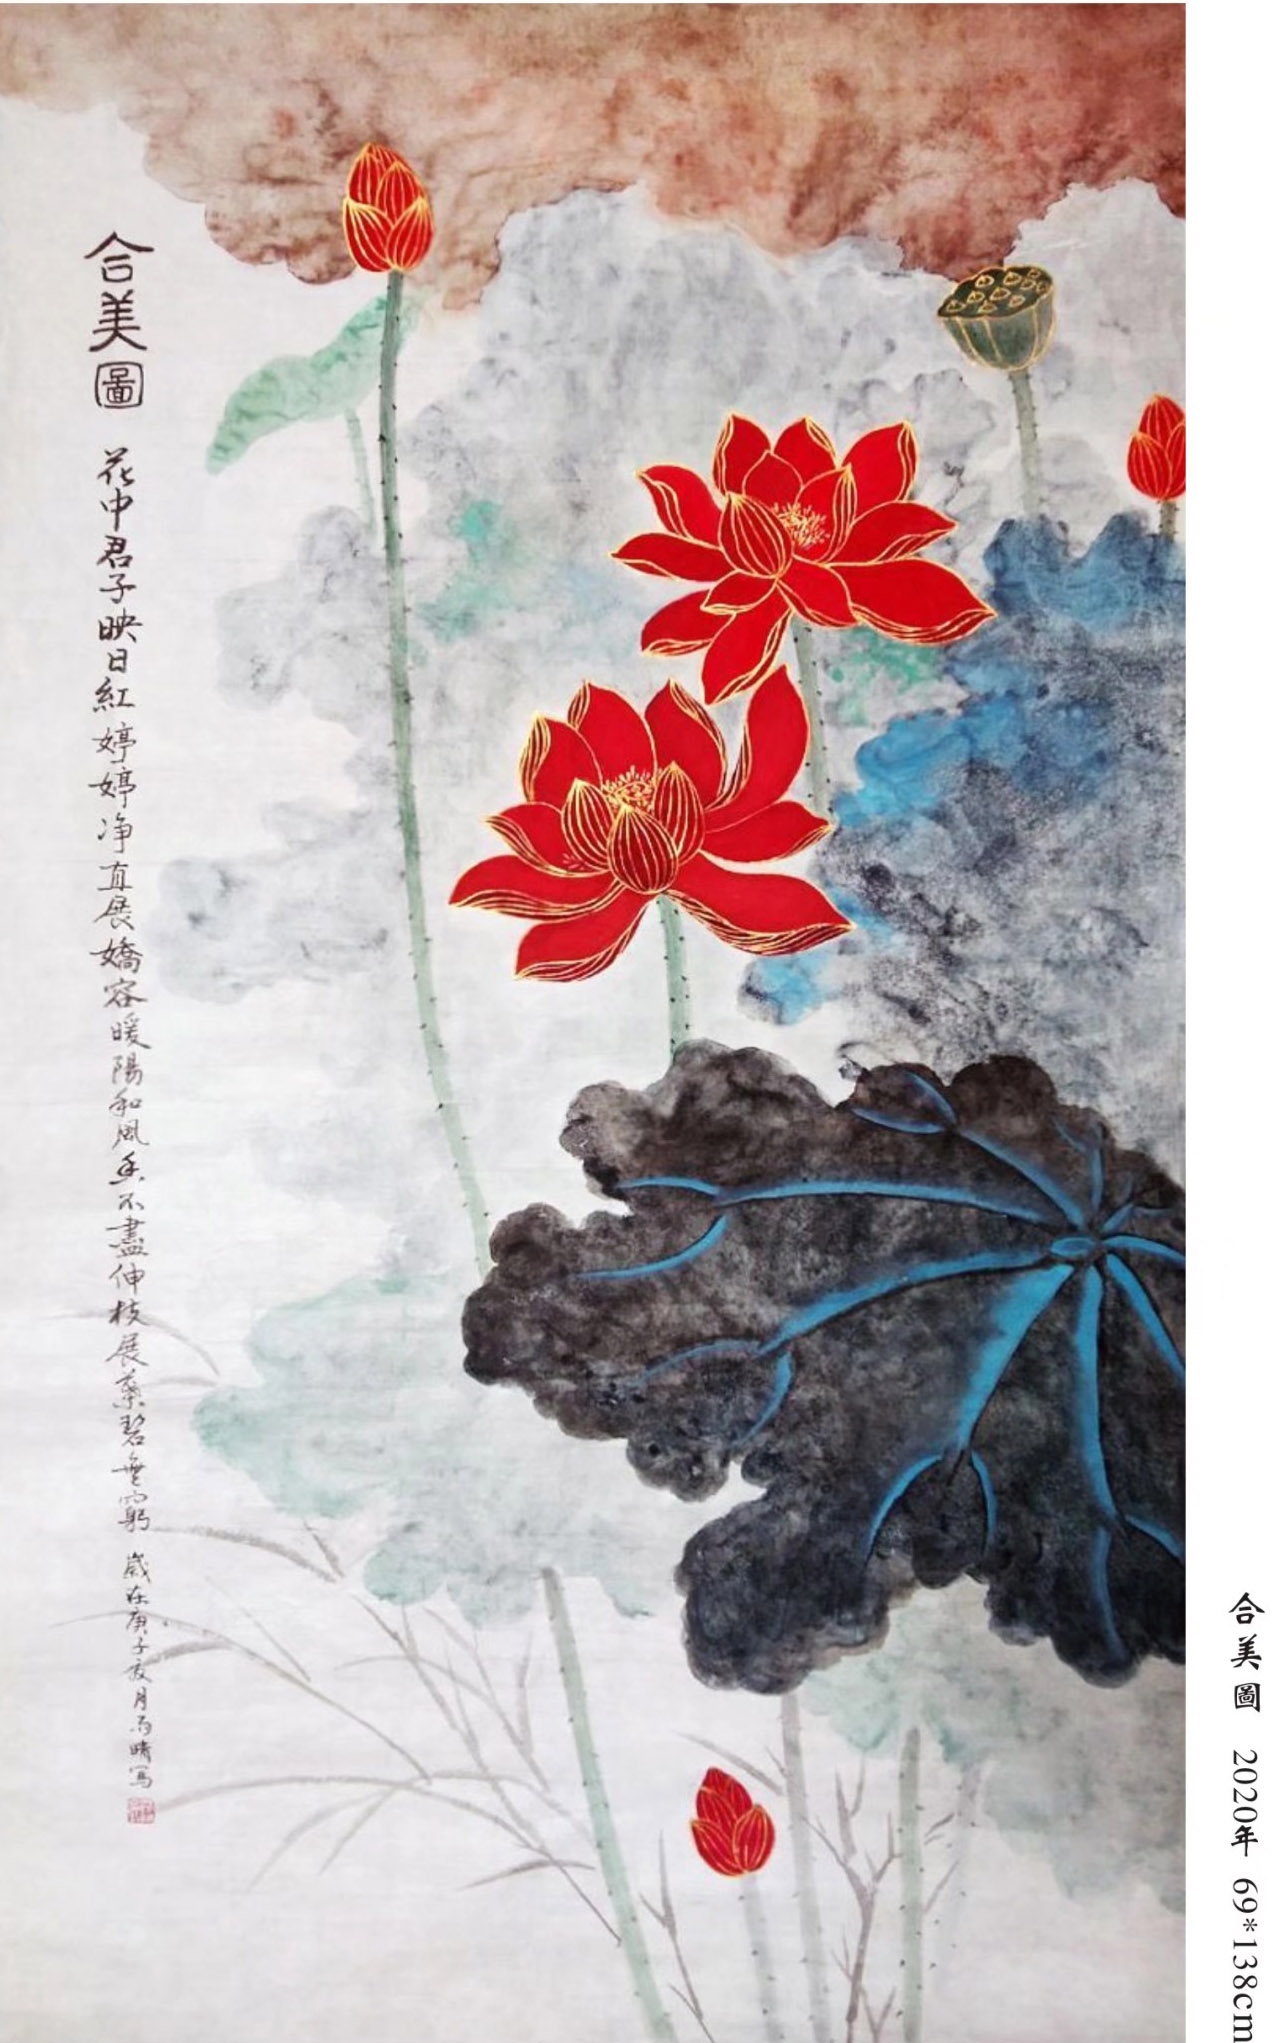 合美圖
花中君子映日紅婷婷净直展嬌容暖陽和風香不盡伸枝展葉碧無窮
歲在庚子亥月雨晴写
合美圖 2020年 69*138cm